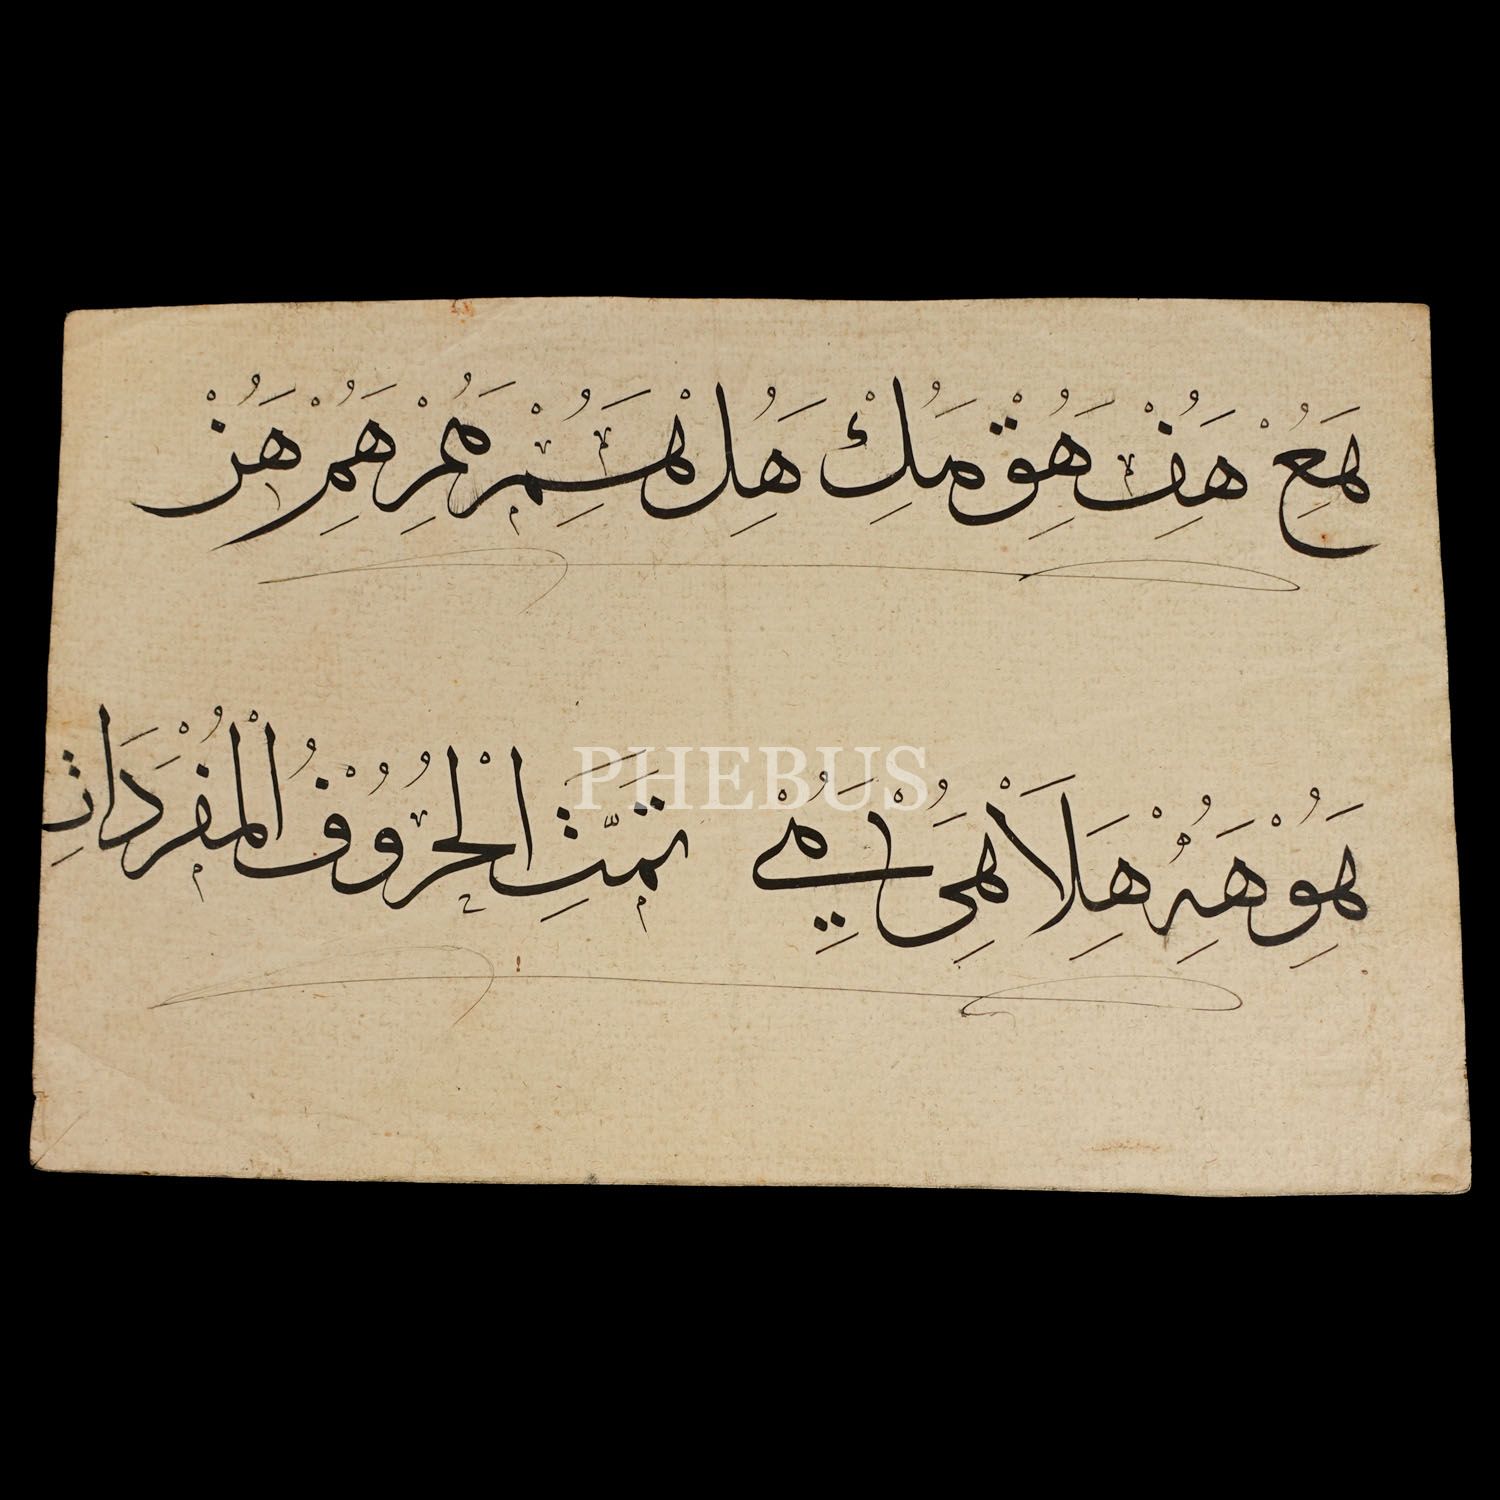 هع هف هق هك هل هم هم هم هم هن
هو هه هلا هى هى تمت الحروف المفردات
PHEBUS